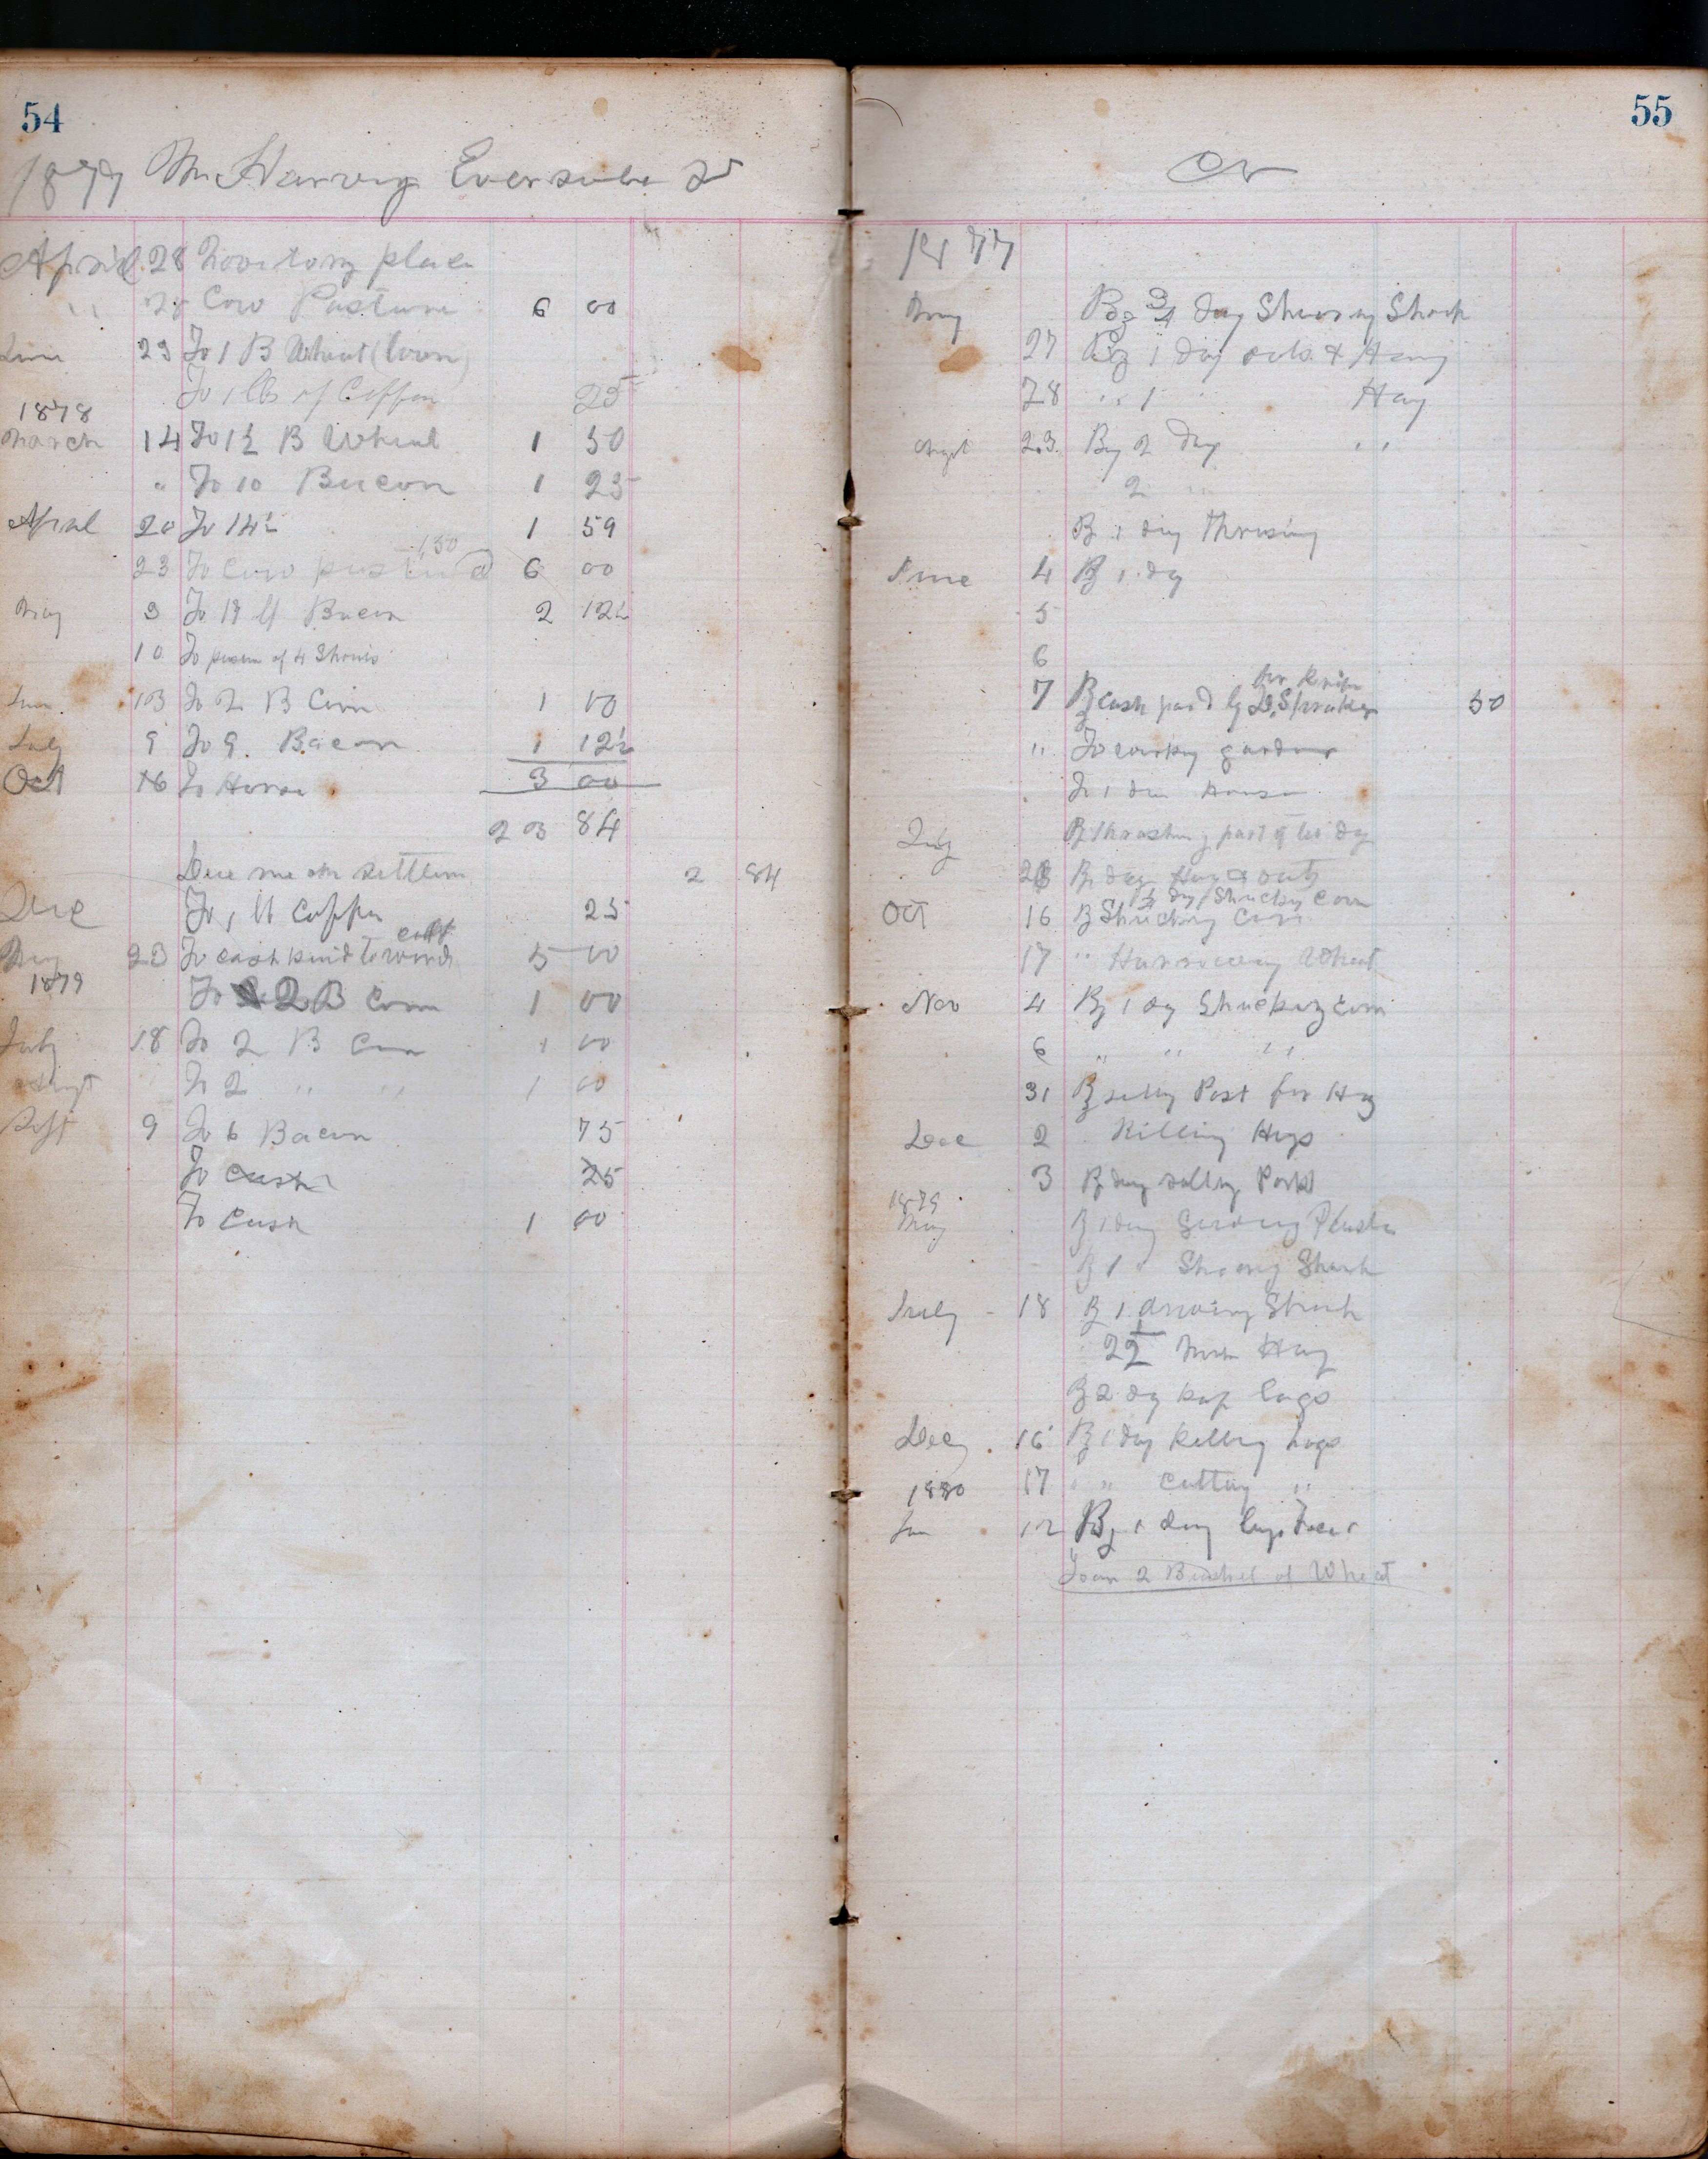 54
1877 Mr Harvey Eversole Dr
April 28 Moved to my place
" 28 Cow Pasture 6 00
June 23 To 1 B Wheat (loan)
To 1 lbs of Coffee 25
1878
March 14 To 1½ B Wheat 1 50
" To 10 Bacon 1 25
Aprial 20 To 14½ 1 59
1,50
23 To Cow pasture 6 00
May 3 To 17 lb Bacon 2 12½
10 To pasture of 4 Shoats
June 13 To 2 B Corn 1 00
July 9 To 9 Bacon 1 12½
Oct 16 To Horse 3 00
23 84
Due me on settlem 2 84
Dec To 1 lb Coffee 25
May 23 To cash paid towards calf 5 00
1879
To 2 B Corn 1 00
July 18 To 2 B Corn 1 00
Augt To 2 " " 1 00
Sept 9 To 6 Bacon 75
To Cash 25
To Cash 1 00
55
Cr
1877
May By 3/4 day Shearing Sheep
27 By 1 day oats & Hay
28 " 1 " Hay
Augt 23 By 2 day " "
2 "
By 1 day Thrasing
June 4 By 1 dy
5
6
for
7 By cash paid by D. Spraker 50
" To garden
To 1 day House
July By thrashing part of the day
28 By day Hay & oats
1½ dy Shucky Corn
Oct 16 By Shucking Corn
17 " Harrowing Wheat
Nov 4 By 1 dy Shucking Corn
6 " " "
31 By Post for Hog
Dec 2 Killing Hogs
3 By day salting Pork
1879
May By 1 day Plaster
By 1 " Shearing Sheep
July 18 By 1 driving Sheep
2½ Hay
By 2 dy logs
Dec 16 By 1 day killing hogs
17 " " Cutting "
1880
Jan 12 By 1 day
Loan 2 Bushel of Wheat